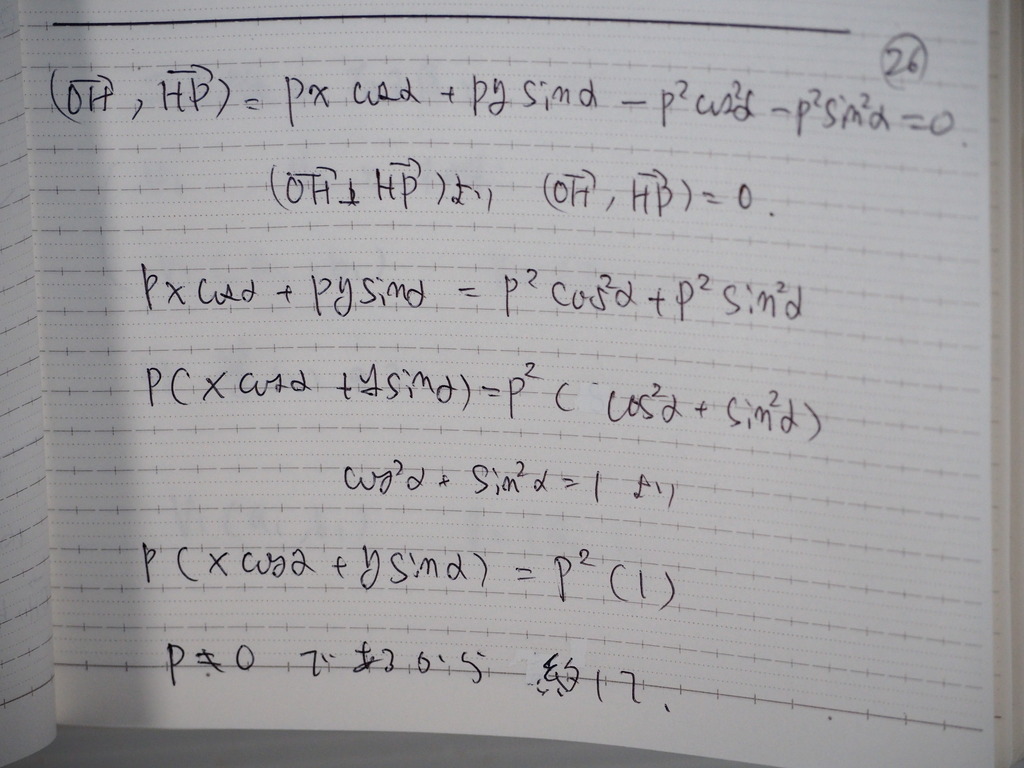 ㉖
(OH→, HP→) = px cosα + py sinα − p²cos²α − p²sin²α = 0.
(OH→ ⊥ HP→)より (OH→, HP→) = 0.
px cosα + py sinα = p² cos²α + p² sin²α
P(x cosα + y sinα) = p² ( cos²α + sin²α)
cos²α + sin²α = 1 より
P(x cosα + y sinα) = p² (1)
p ≠ 0 であるから 約して、